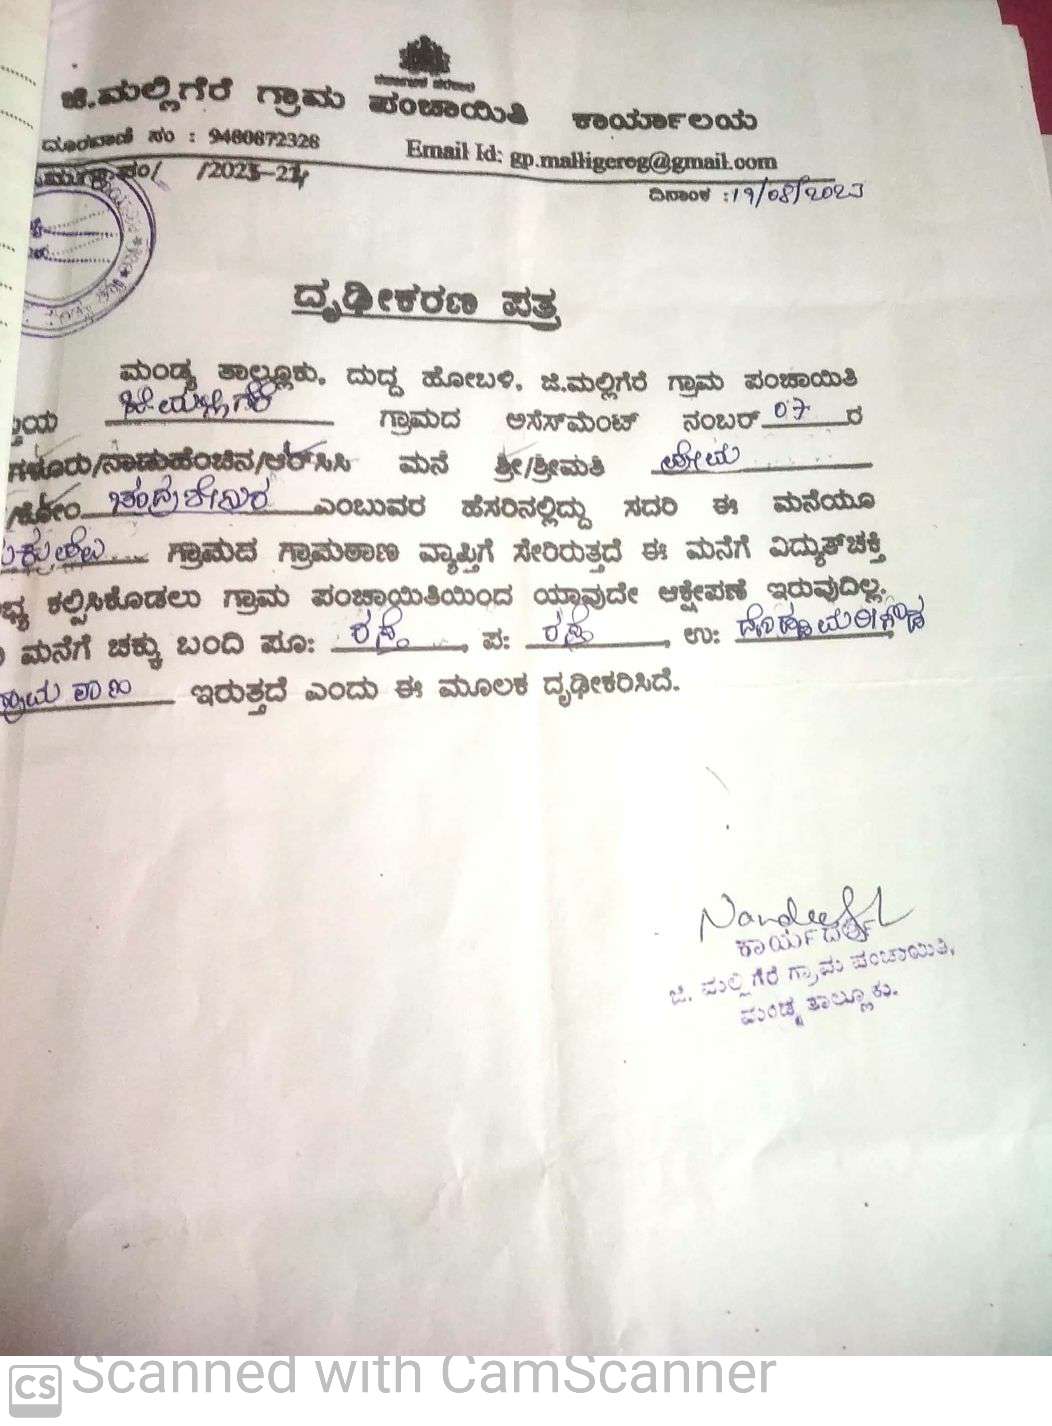 ಜಿ.ಮಲ್ಲಿಗೆರೆ ಗ್ರಾಮ ಪಂಚಾಯಿತಿ ಕಾರ್ಯಾಲಯ
ದೂರವಾಣಿ ಸಂ : 9480872328 Email Id: gp.malligereg@gmail.com
/2023-24
ದಿನಾಂಕ : 19/08/2023
ದೃಢೀಕರಣ ಪತ್ರ
ಮಂಡ್ಯ ತಾಲ್ಲೂಕು, ದುದ್ದ ಹೋಬಳಿ, ಜಿ.ಮಲ್ಲಿಗೆರೆ ಗ್ರಾಮ ಪಂಚಾಯಿತಿ
ಜಿ.ಮಲ್ಲಿಗೆರೆ ಗ್ರಾಮದ ಅಸೆಸ್‌ಮೆಂಟ್ ನಂಬರ್ 07 ರ
ಗಳೂರು/ನಾಡುಹೆಂಚಿನ/ಆರ್‌ಸಿಸಿ ಮನೆ ಶ್ರೀ/ಶ್ರೀಮತಿ
ಚಂದ್ರಶೇಖರ ಎಂಬುವರ ಹೆಸರಿನಲ್ಲಿದ್ದು ಸದರಿ ಈ ಮನೆಯೂ
ಗ್ರಾಮದ ಗ್ರಾಮಠಾಣ ವ್ಯಾಪ್ತಿಗೆ ಸೇರಿರುತ್ತದೆ ಈ ಮನೆಗೆ ವಿದ್ಯುತ್‌ಚಕ್ತಿ
ಕಲ್ಪಿಸಿಕೊಡಲು ಗ್ರಾಮ ಪಂಚಾಯಿತಿಯಿಂದ ಯಾವುದೇ ಆಕ್ಷೇಪಣೆ ಇರುವುದಿಲ್ಲ.
ಮನೆಗೆ ಚಕ್ಕು ಬಂದಿ ಪೂ: ರಸ್ತೆ, ಪ: ರಸ್ತೆ, ಉ:
ಇರುತ್ತದೆ ಎಂದು ಈ ಮೂಲಕ ದೃಢೀಕರಿಸಿದೆ.
ಕಾರ್ಯದರ್ಶಿ
ಜಿ. ಮಲ್ಲಿಗೆರೆ ಗ್ರಾಮ ಪಂಚಾಯಿತಿ,
ಮಂಡ್ಯ ತಾಲ್ಲೂಕು.
CS Scanned with CamScanner